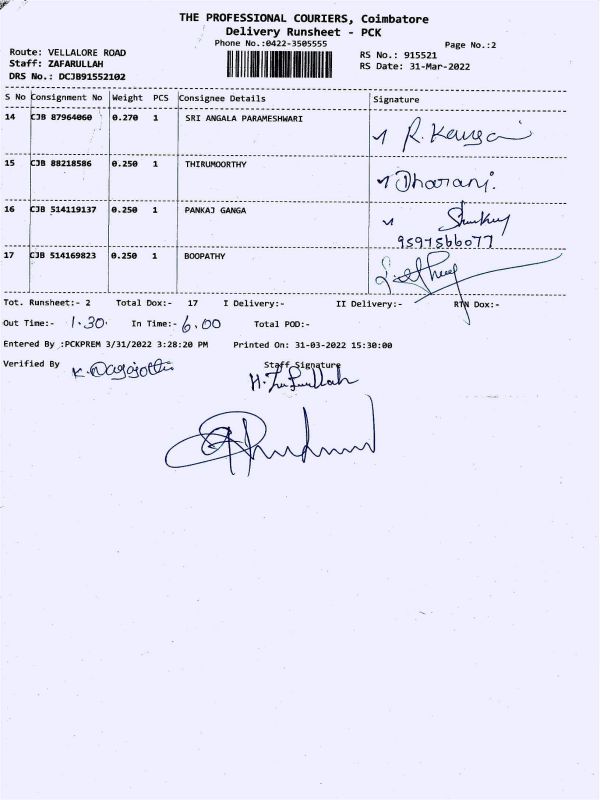 THE PROFESSIONAL COURIERS, Coimbatore
Delivery Runsheet - PCK
Phone No.:0422-3505555 Page No.:2
Route: VELLALORE ROAD RS No.: 915521
Staff: ZAFARULLAH RS Date: 31-Mar-2022
DRS No.: DCJB91552102
S No Consignment No Weight PCS Consignee Details Signature
14 CJB 87964060 0.270 1 SRI ANGALA PARAMESHWARI
15 CJB 88218586 0.250 1 THIRUMOORTHY Dharani.
16 CJB 514119137 0.250 1 PANKAJ GANGA
9597566077
17 CJB 514169823 0.250 1 BOOPATHY
Tot. Runsheet:- 2 Total Dox:- 17 I Delivery:- II Delivery:- RTN Dox:-
Out Time:- 1.30. In Time:- 6.00 Total POD:-
Entered By :PCKPREM 3/31/2022 3:28:20 PM Printed On: 31-03-2022 15:30:00
Verified By Staff Signature